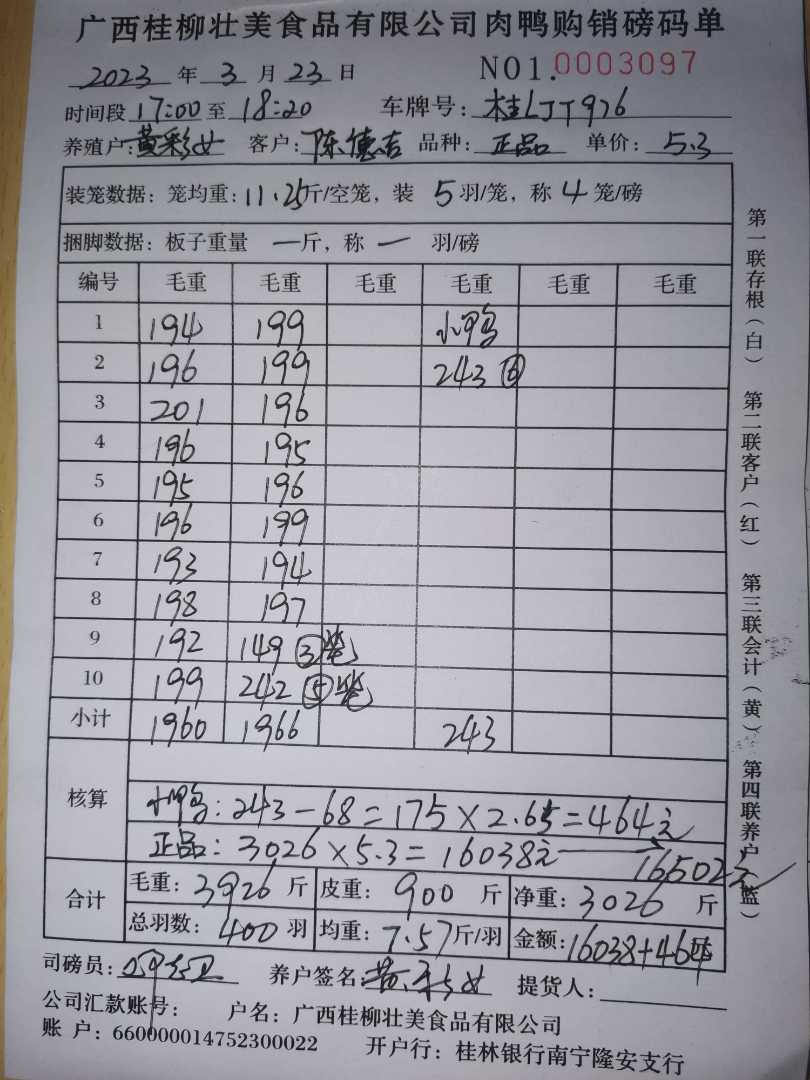 广西桂柳壮美食品有限公司肉鸭购销磅码单
2023 年 3 月 23 日 NO1.0003097
时间段 17:00 至 18:20 车牌号: 桂LJT976
养殖户: 黄彩女 客户: 陈德吉 品种: 正品 单价: 5.3
装笼数据: 笼均重: 11.25 斤/空笼, 装 5 羽/笼, 称 4 笼/磅
捆脚数据: 板子重量 一 斤, 称 一 羽/磅
编号 毛重 毛重 毛重 毛重 毛重 毛重
1 194 199 小鸭
2 196 199 243 ⑥
3 201 196
4 196 195
5 195 196
6 196 199
7 193 194
8 198 197
9 192 149 ③笼
10 199 242 ⑤笼
小计 1960 1966 243
核算
小鸭: 243-68=175×2.65=464元
正品: 3026×5.3=16038元 16502元
合计
毛重: 3926 斤 皮重: 900 斤 净重: 3026 斤
总羽数: 400 羽 均重: 7.57 斤/羽 金额: 16038+464
司磅员: 养户签名: 黄彩女 提货人:
公司汇款账号: 户名: 广西桂柳壮美食品有限公司
账 户: 660000014752300022 开户行: 桂林银行南宁隆安支行
第一联存根(白) 第二联客户(红) 第三联会计(黄) 第四联养户(蓝)